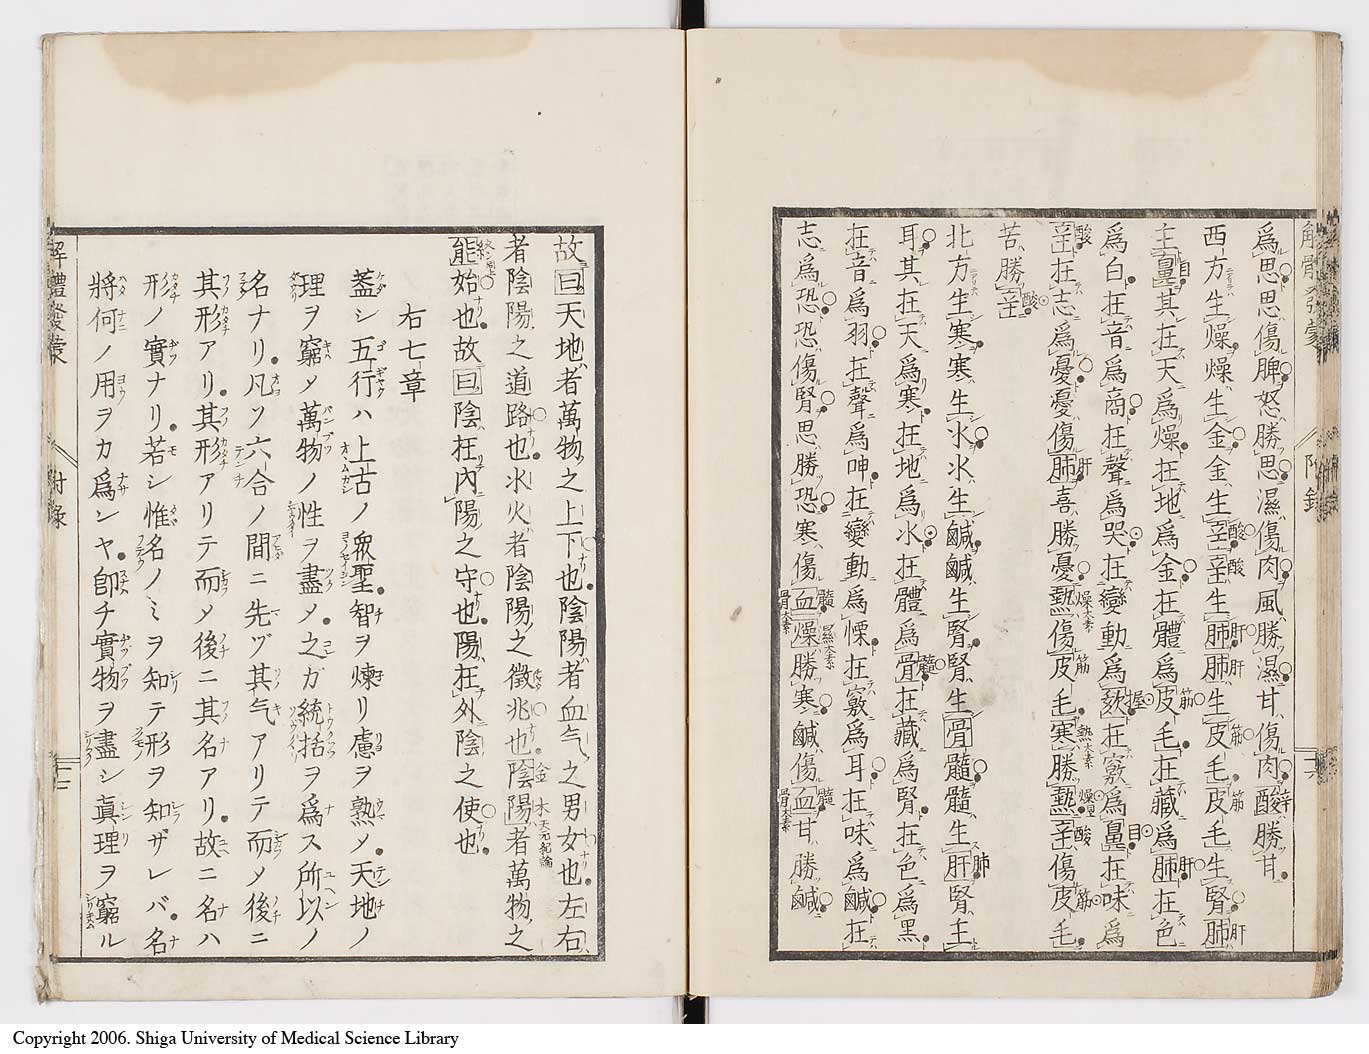 爲思思傷脾怒勝思濕傷肉風勝濕甘傷肉酸勝甘
西方生燥燥生金金生辛辛生肺肺生皮毛皮毛生腎肺
主鼻其在天爲燥在地爲金在體爲皮毛在藏爲肺在色
爲白在音爲商在聲爲哭在變動爲欬在竅爲鼻在味爲
辛在志爲憂憂傷肺喜勝憂熱傷皮毛寒勝熱辛傷皮毛
苦勝辛
北方生寒寒生水水生鹹鹹生腎腎生骨髓髓生肝腎主
耳其在天爲寒在地爲水在體爲骨在藏爲腎在色爲黑
在音爲羽在聲爲呻在變動爲慄在竅爲耳在味爲鹹在
志爲恐恐傷腎思勝恐寒傷血燥勝寒鹹傷血甘勝鹹
故曰天地者萬物之上下也陰陽者血气之男女也左右
者陰陽之道路也水火者陰陽之徵兆也陰陽者萬物之
能始也故曰陰在内陽之守也陽在外陰之使也
右七章
蓋シ五行ハ上古ノ衆聖智ヲ煉リ慮ヲ熟メ天地ノ
理ヲ窮メ萬物ノ性ヲ盡メ之ガ統括ヲ爲ス所以ノ
名ナリ凡ソ六合ノ間ニ先ヅ其气アリテ而メ後ニ
其形アリ其形アリテ而メ後ニ其名アリ故ニ名ハ
形ノ實ナリ若シ惟名ノミヲ知テ形ヲ知ザレバ名
將何ノ用ヲカ爲ンヤ卽チ實物ヲ盡シ眞理ヲ窮ル
解體發蒙
附錄
Copyright 2006. Shiga University of Medical Science Library